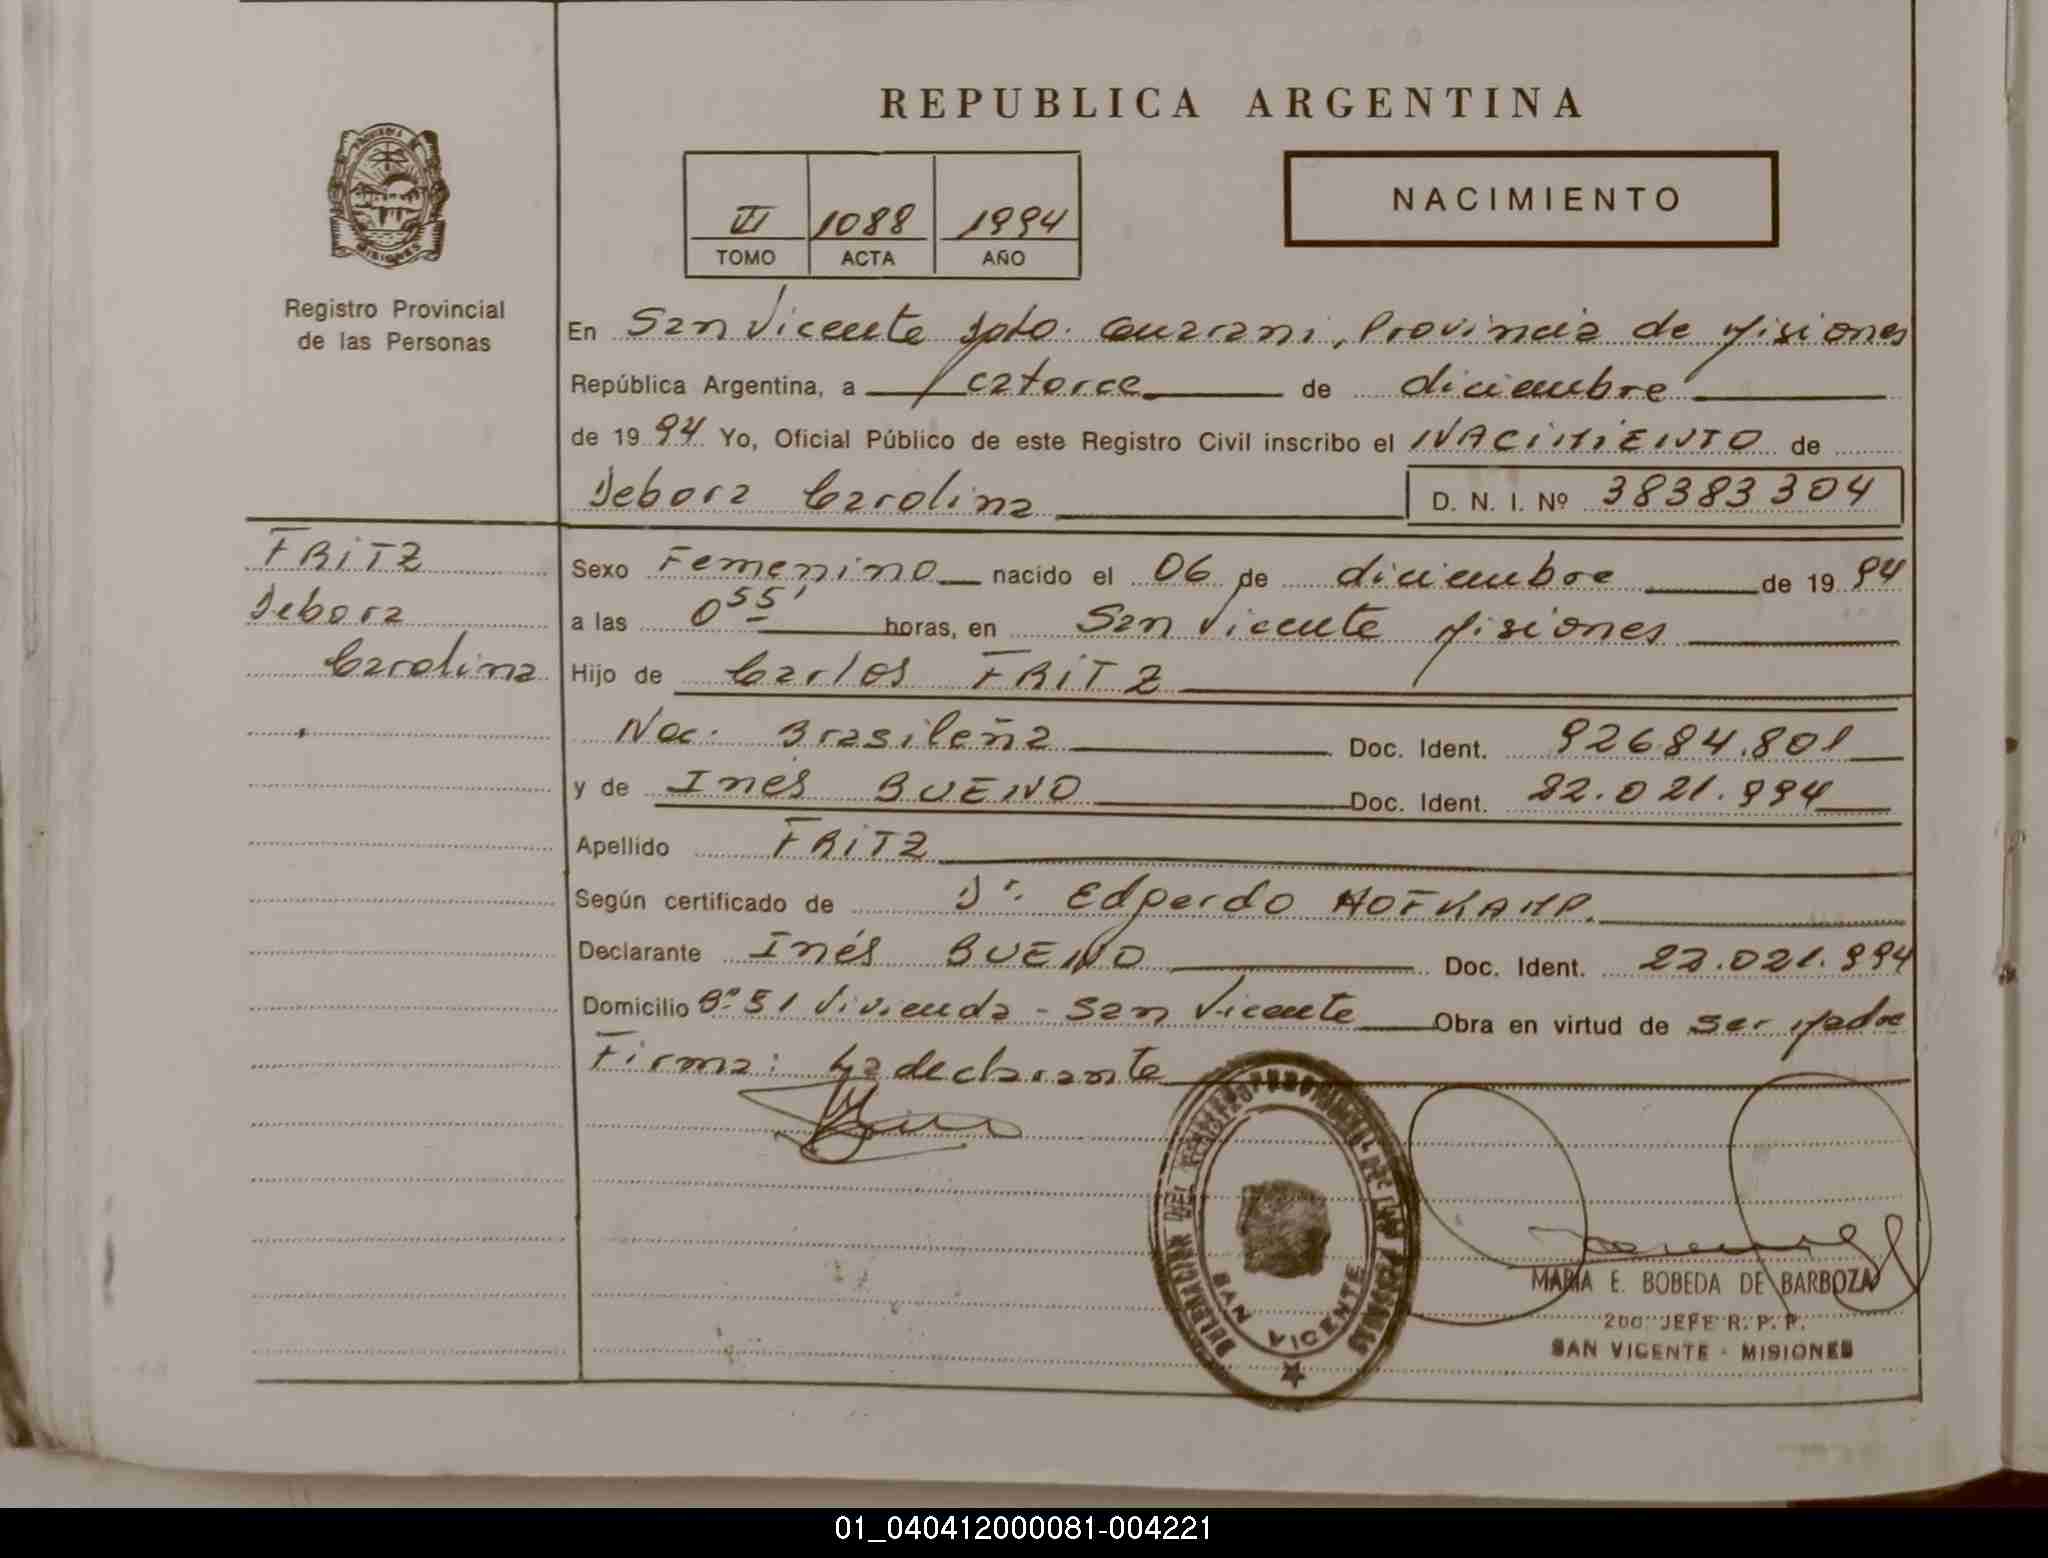 REPUBLICA ARGENTINA
NACIMIENTO
VI 1088 1994
TOMO ACTA AÑO
PROVINCIA
MISIONES
Registro Provincial
de las Personas
En San Vicente Dpto. Guarani, Provincia de Misiones
República Argentina, a catorce de diciembre
de 1994 Yo, Oficial Público de este Registro Civil inscribo el NACIMIENTO de
Debora Carolina D. N. I. Nº 38383304
FRITZ
Debora
Carolina
Sexo Femenino nacido el 06 de diciembre de 1994
a las 0 55' horas, en San Vicente Misiones
Hijo de Carlos FRITZ
Nac. Brasileña Doc. Ident. 92684.801
y de Inés BUENO Doc. Ident. 22.021.994
Apellido FRITZ
Según certificado de Dr. Edgardo HOFKAMP.
Declarante Inés BUENO Doc. Ident. 22.021.994
Domicilio Bº 51 Vivienda - San Vicente Obra en virtud de ser Madre
Firma: La declarante
DELEGACION DEL REGISTRO PROVINCIAL DE LAS PERSONAS
SAN VICENTE
MARIA E. BOBEDA DE BARBOZA
2do JEFE R. P. P.
SAN VICENTE - MISIONES
01_040412000081-004221